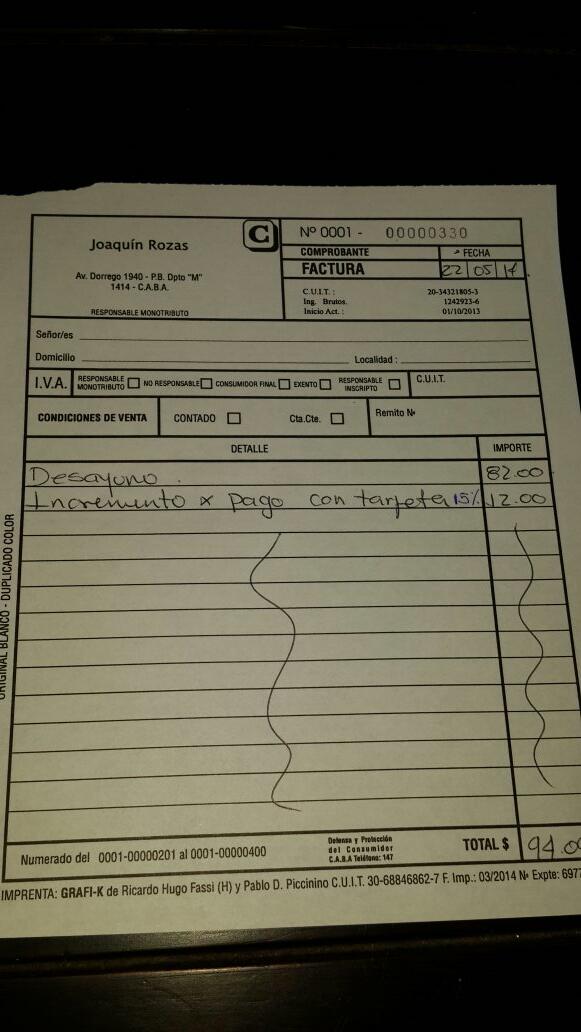 Joaquín Rozas
Av. Dorrego 1940 - P.B. Dpto "M"
1414 - C.A.B.A.
RESPONSABLE MONOTRIBUTO
C
Nº 0001 - 00000330
COMPROBANTE
FACTURA
FECHA
22 05 14
C.U.I.T. : 20-34321805-3
Ing. Brutos. 1242923-6
Inicio Act. : 01/10/2013
Señor/es
Domicilio Localidad :
I.V.A. RESPONSABLE MONOTRIBUTO NO RESPONSABLE CONSUMIDOR FINAL EXENTO RESPONSABLE INSCRIPTO C.U.I.T.
CONDICIONES DE VENTA CONTADO Cta.Cte. Remito Nº
DETALLE IMPORTE
Desayuno. 82.00
Incremento x pago con tarjeta 15% 12.00
ORIGINAL BLANCO - DUPLICADO COLOR
Numerado del 0001-00000201 al 0001-00000400
Defensa y Protección
del Consumidor
C.A.B.A Teléfono: 147
TOTAL $ 94.00
IMPRENTA: GRAFI-K de Ricardo Hugo Fassi (H) y Pablo D. Piccinino C.U.I.T. 30-68846862-7 F. Imp.: 03/2014 Nº Expte: 6977